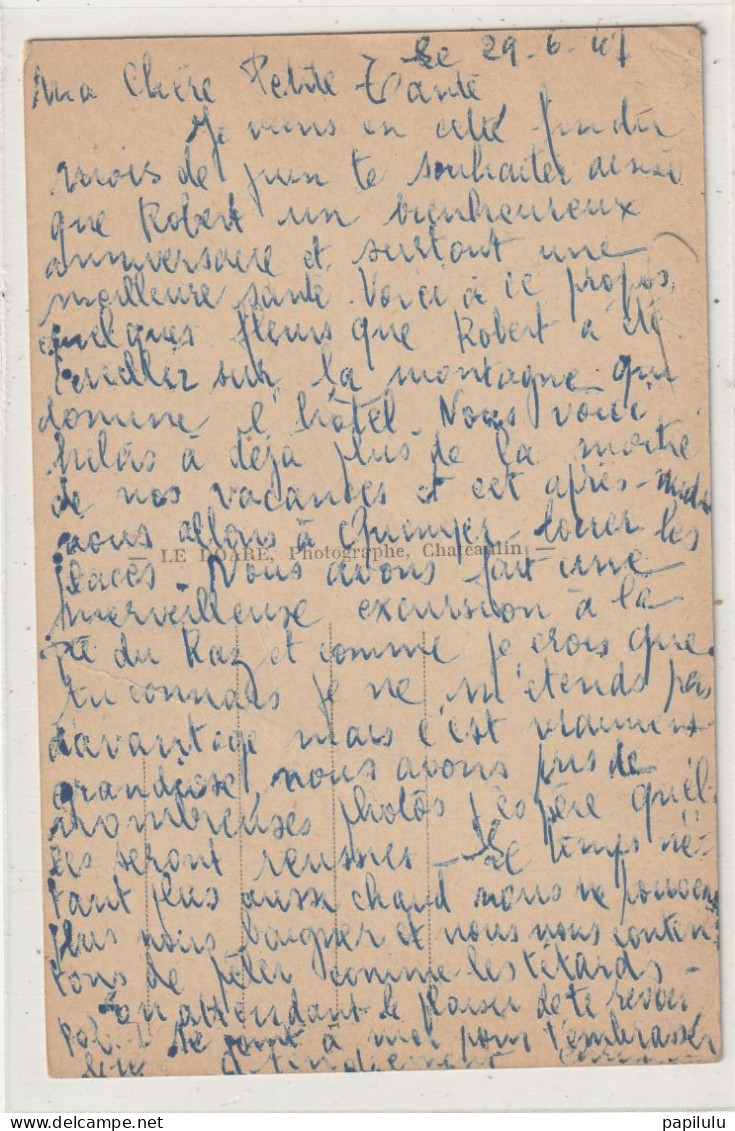 Le 29-6-47
Ma Chère Petite Tante
Je viens en cette fin du
mois de juin te souhaiter ainsi
que Robert un bienheureux
anniversaire et surtout une
meilleure santé. Voici à ce propos,
quelques fleurs que Robert a été
cueillir sur la montagne qui
domine l'hôtel. Nous voici
hélas à déjà plus de la moitié
de nos vacances et cet après-midi
nous allons à Quimper louer les
— LE DOARÉ, Photographe, Chateaulin —
places. Nous avons fait une
merveilleuse excursion à la
Pte du Raz et comme je crois que
tu connais je ne m'étends pas
davantage mais c'est vraiment
grandiose, nous avons pris de
nombreuses photos j'espère qu'el-
les seront réussies — Le temps n'é-
tant plus aussi chaud nous ne pouvons
plus nous baigner et nous nous conten
tons de pêler comme les tétards —
En attendant le plaisir de te revoir
se joint à moi pour t'embrasser